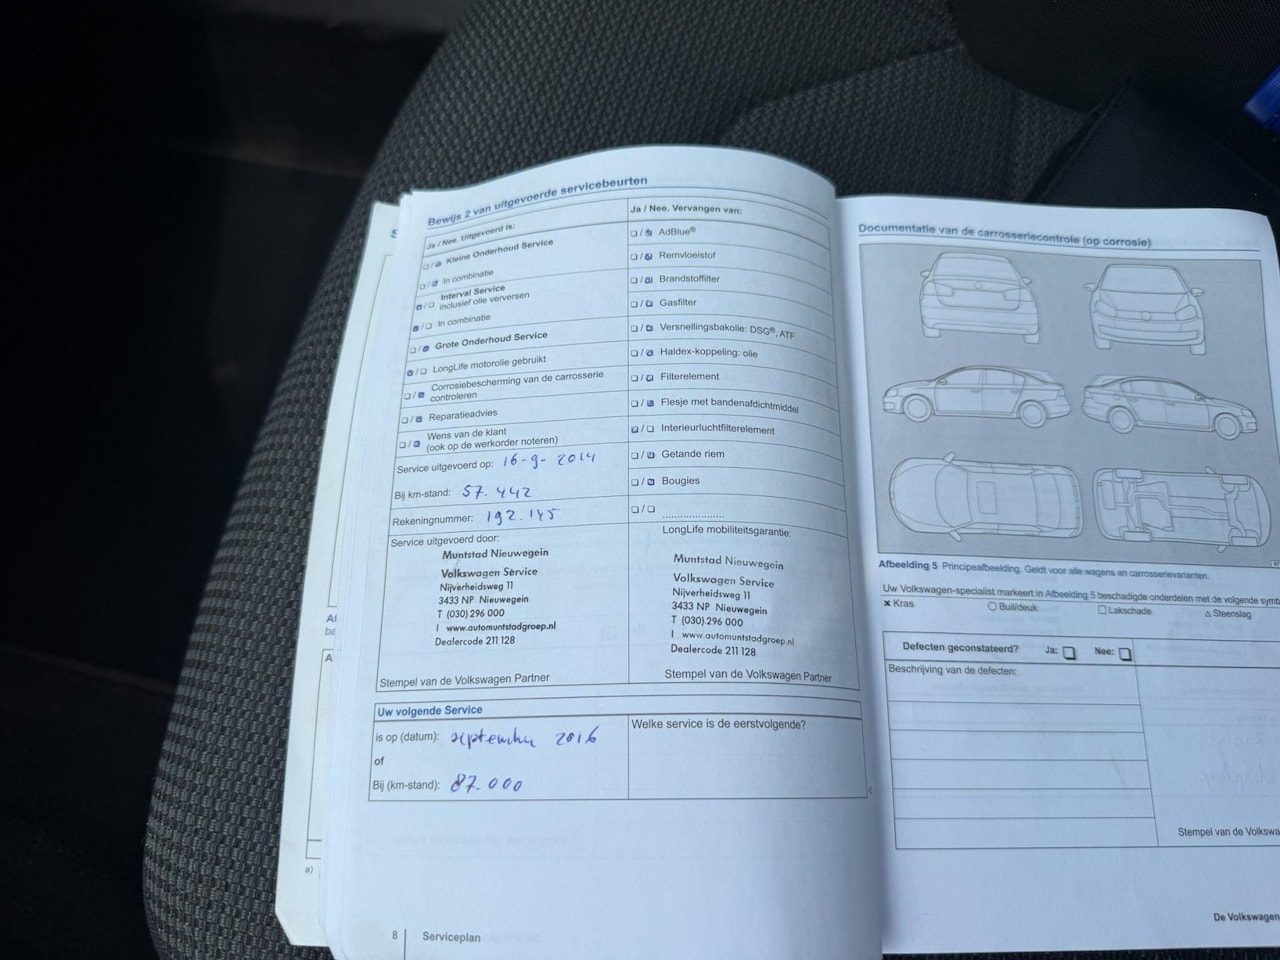 Bewijs 2 van uitgevoerde servicebeurten
Ja / Nee. Uitgevoerd is:
❏ / ☑ Kleine Onderhoud Service
❏ / ☑ In combinatie
☑ / ❏ Interval Service
inclusief olie verversen
☑ / ❏ In combinatie
❏ / ☑ Grote Onderhoud Service
☑ / ❏ LongLife motorolie gebruikt
❏ / ☑ Corrosiebescherming van de carrosserie
controleren
❏ / ☑ Reparatieadvies
❏ / ☑ Wens van de klant
(ook op de werkorder noteren)
Service uitgevoerd op: 16-9-2014
Bij km-stand: 57.442
Rekeningnummer: 192.145
Service uitgevoerd door:
Muntstad Nieuwegein
Volkswagen Service
Nijverheidsweg 11
3433 NP Nieuwegein
T (030) 296 000
I www.automuntstadgroep.nl
Dealercode 211 128
Stempel van de Volkswagen Partner
Ja / Nee. Vervangen van:
❏ / ☑ AdBlue®
❏ / ☑ Remvloeistof
❏ / ☑ Brandstoffilter
❏ / ☑ Gasfilter
❏ / ☑ Versnellingsbakolie: DSG®, ATF
❏ / ☑ Haldex-koppeling: olie
❏ / ☑ Filterelement
❏ / ☑ Flesje met bandenafdichtmiddel
☑ / ❏ Interieurluchtfilterelement
❏ / ☑ Getande riem
❏ / ☑ Bougies
❏ / ❏ ......................
LongLife mobiliteitsgarantie:
Muntstad Nieuwegein
Volkswagen Service
Nijverheidsweg 11
3433 NP Nieuwegein
T (030) 296 000
I www.automuntstadgroep.nl
Dealercode 211 128
Stempel van de Volkswagen Partner
Uw volgende Service
is op (datum): september 2016
of
Bij (km-stand): 87.000
Welke service is de eerstvolgende?
8 Serviceplan
Documentatie van de carrosseriecontrole (op corrosie)
Afbeelding 5 Principeafbeelding. Geldt voor alle wagens en carrosserievarianten.
Uw Volkswagen-specialist markeert in Afbeelding 5 beschadigde onderdelen met de volgende symb
× Kras ○ Buil/deuk ❏ Lakschade △ Steenslag
Defecten geconstateerd? Ja: ❏ Nee: ❏
Beschrijving van de defecten:
Stempel van de Volkswa
De Volkswagen
a)